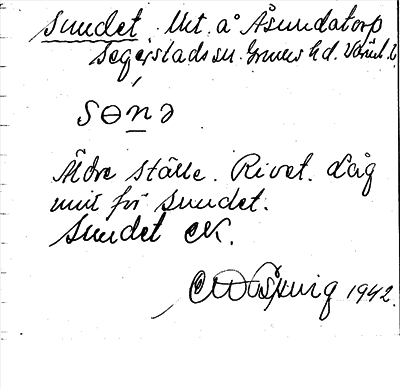 Sundet. Utl. å Åsundatorp
Segerstads sn. Grums hd. Värml. l.
sɵnə
Äldre ställe. Rivet. Låg
mitt för sundet.
Sundet EK.
1942.